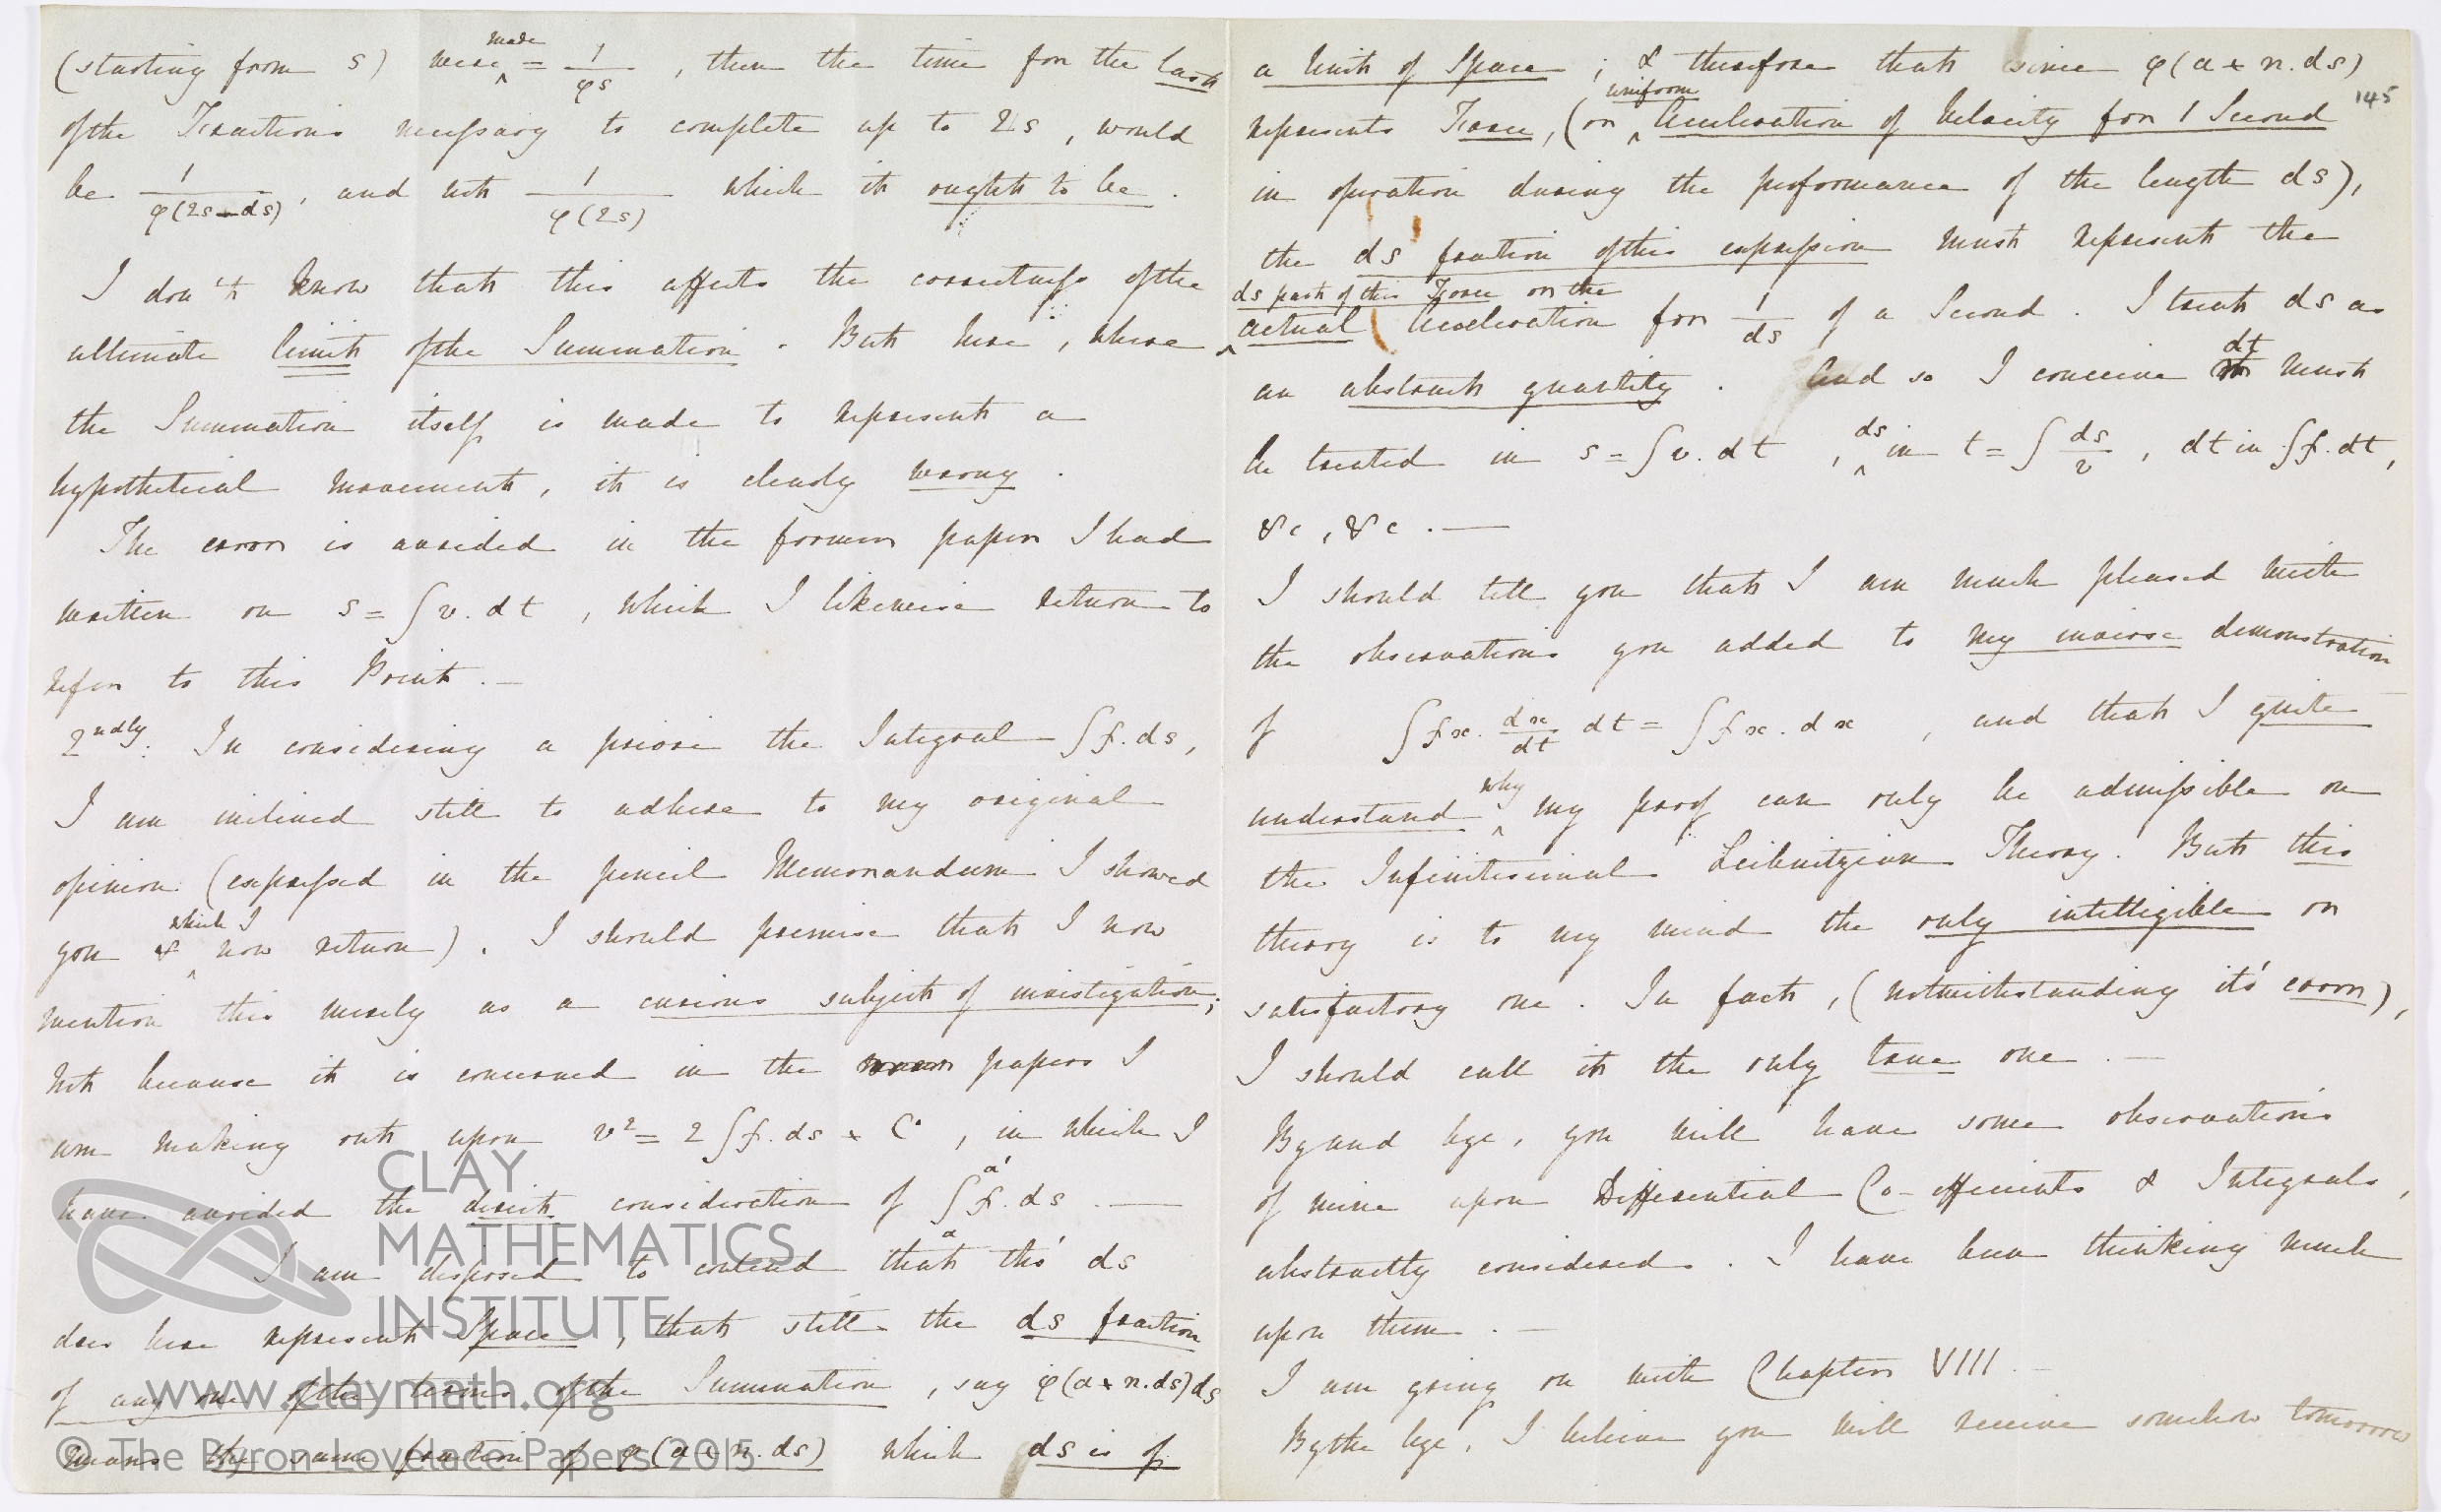 (starting from s) were made = 1/φs , then the time for the last
of the Fractions necessary to complete up to 2s , would
be 1/φ(2s-ds) , and not 1/φ(2s) which it ought to be .
I don't know that this affects the correctness of the
ultimate limit of the Summation . But here , where
the Summation itself is made to represent a
hypothetical movement , it is clearly wrong .
The error is avoided in the former paper I had
written on s = ∫v.dt , which I likewise return to
refer to this Point . —
2ndly. In considering a priori the Integral ∫f.ds ,
I am inclined still to adhere to my original
opinion (expressed in the pencil Memorandum I showed
you & which I now return) . I should premise that I now
mention this merely as a curious subject of investigation ;
not because it is concerned in the papers I
am making out upon v² = 2∫f.ds + C , in which I
have avoided the direct consideration of ∫ₐᵃ' f.ds . —
I am disposed to contend that tho' ds
does here represent Space , that still the ds fraction
of any one of the terms of the Summation , say φ(a+n.ds)ds
means the same fraction of φ(a+n.ds) which ds is of
a unit of Space ; & therefore that since φ(a+n.ds)
145
represents Force , (or uniform Acceleration of Velocity for 1 Second
in operation during the performance of the length ds) ,
the ds fraction of this expression must represent the
ds part of this Force or the
actual Acceleration for 1/ds of a Second . I treat ds as
an abstract quantity . And so I conceive dt must
be treated in s = ∫v.dt , ds in t = ∫ds/v , dt in ∫f.dt ,
&c , &c . —
I should tell you that I am much pleased with
the observations you added to my inverse demonstration
of ∫fx.dx/dt dt = ∫fx.dx , and that I quite
understand why my proof can only be admissible on
the Infinitesimal Leibnitzian Theory . But this
theory is to my mind the only intelligible or
satisfactory one . In fact , (notwithstanding it's error) ,
I should call it the only true one . —
By and bye , you will have some observations
of mine upon Differential Co-efficients & Integrals ,
abstractly considered . I have been thinking much
upon them . —
I am going on with Chapter VIII . —
By the bye , I believe you will receive somehow tomorrow
CLAY
MATHEMATICS
INSTITUTE
www.claymath.org
© The Byron-Lovelace Papers 2015